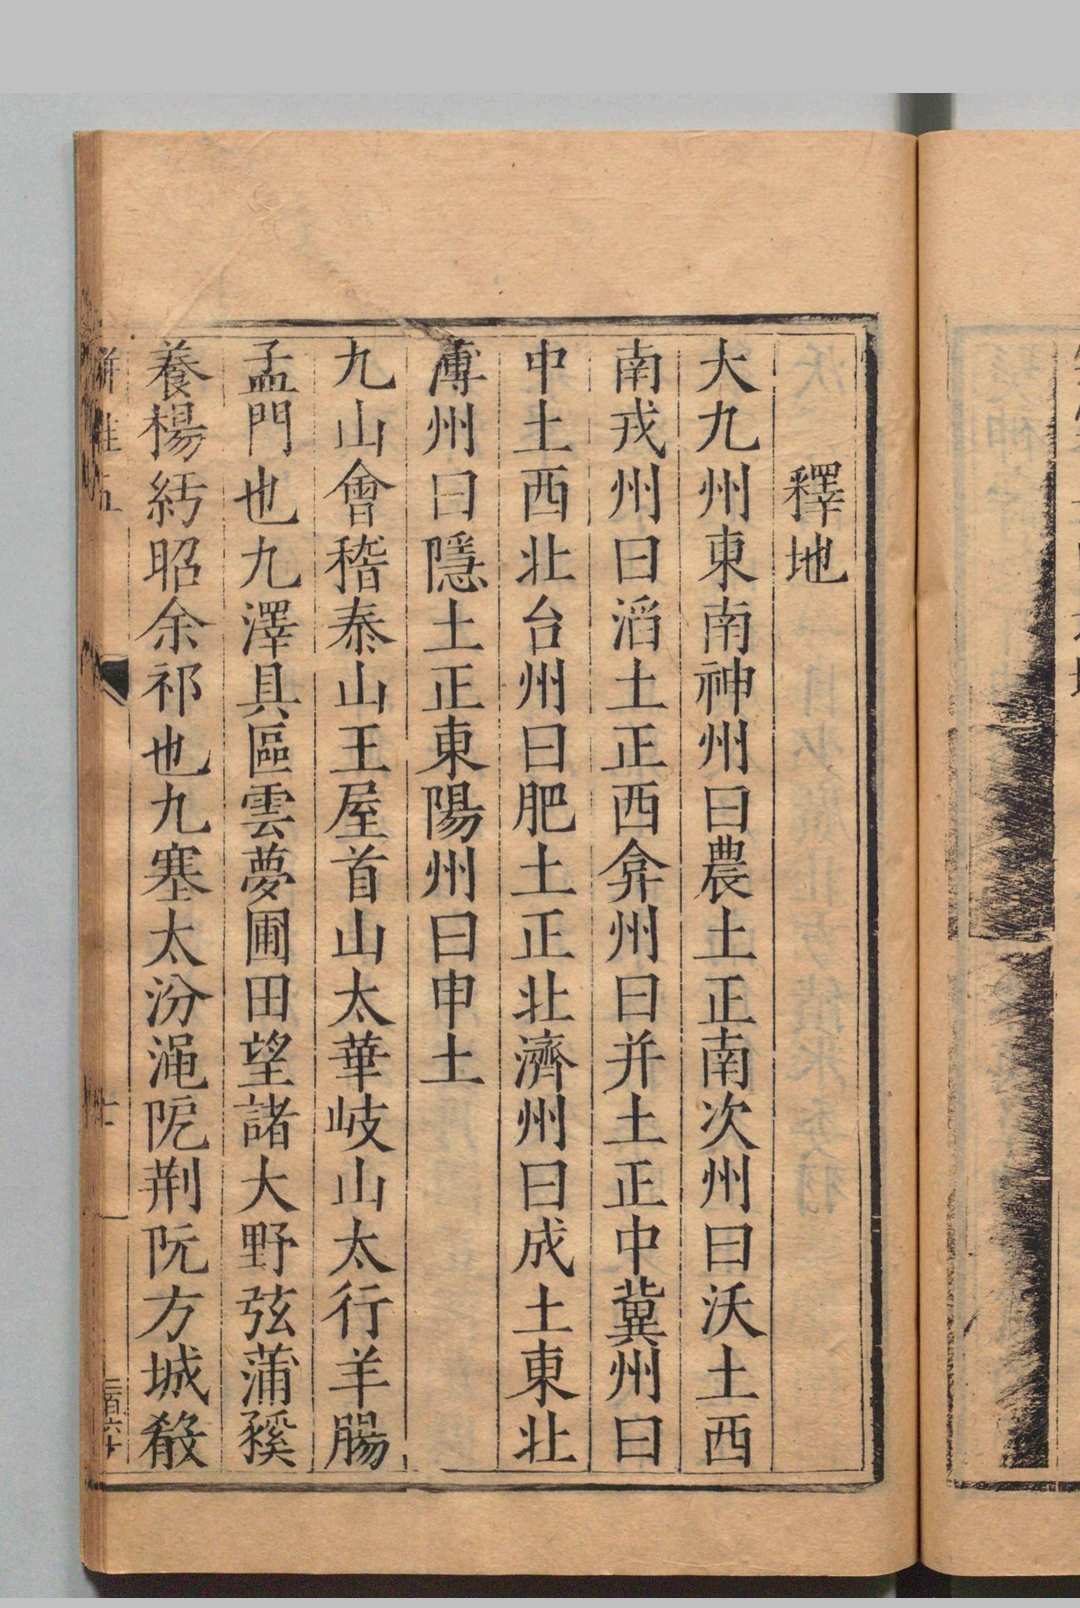 釋地
大九州東南神州曰農土正南次州曰沃土西
南戎州曰滔土正西弇州曰并土正中冀州曰
中土西北台州曰肥土正北濟州曰成土東北
薄州曰隱土正東陽州曰申土
九山會稽泰山王屋首山太華岐山太行羊腸
孟門也九澤具區雲夢圃田望諸大野弦蒲豯
養楊紆昭余祁也九塞太汾澠阨荆阮方城殽
駢雅五
十一
二百六十